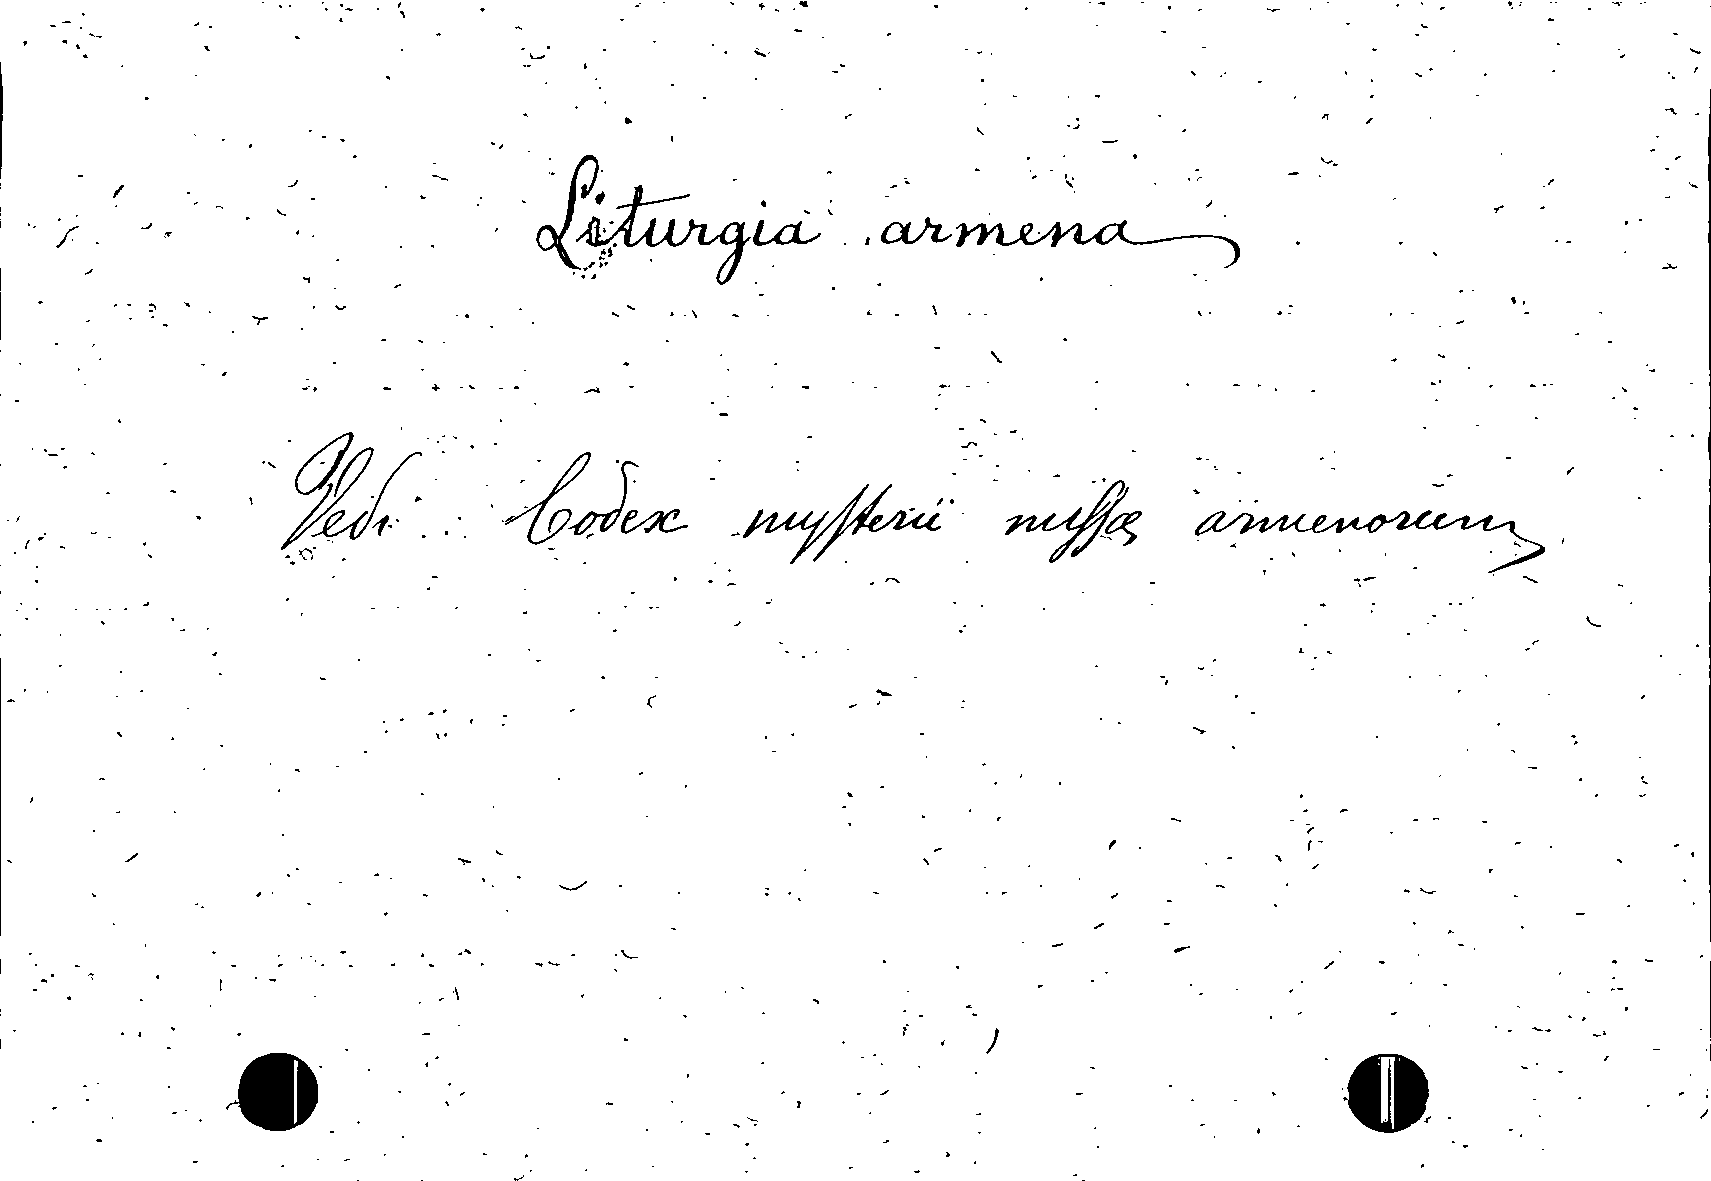 Liturgia armena
Vedi Codex mysterii missæ armenorum